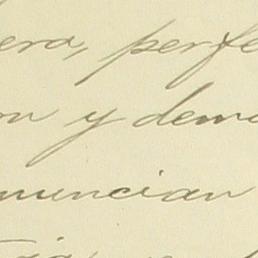 era, perfe
on y dema
nuncian